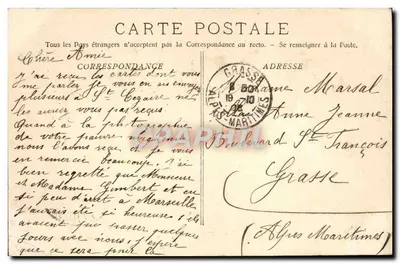 CARTE POSTALE
Tous les Pays étrangers n'acceptent pas la Correspondance au recto. – Se renseigner à la Poste.
CORRESPONDANCE
ADRESSE
Chère Amie
J'ai reçu les cartes dont vous
me parler je vous en envoyer
plusieurs à St Cezaire ne
les auriez vous pas reçus
Quand à la photographie
de votre pauvre
nous l'avons reçu et je vous
en remercie beaucoup. J'ai
bien regretté que Monsieur
et Madame Gimbert et en
si peu d'arrêt à Marseille
j'aurais été si heureuse s'ils
avaient pu passer quelques
jours avec nous j'espère
que ce sera pour la
GRASSE
ALPES-MARITIMES
Madame Marsal
Anne Jeanne
Boulevard St François
Grasse
(Alpes Maritimes)